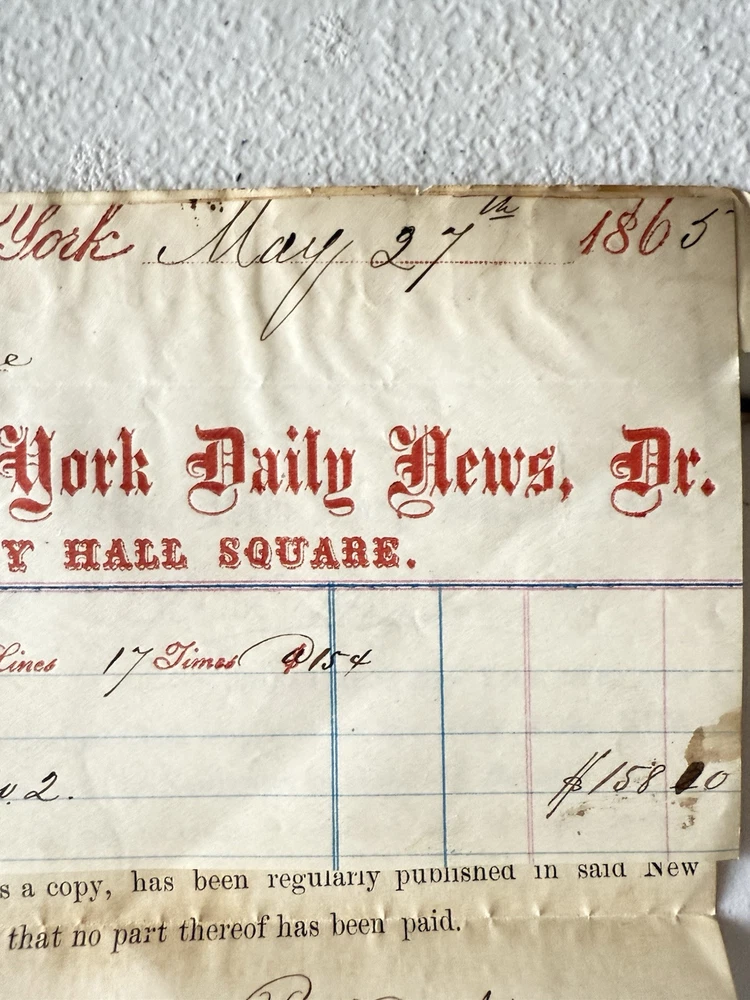 York May 27th 1865
e
York Daily News, Dr.
Y HALL SQUARE.
Lines 17 Times @ 15 ¢
2.
$158 10
s a copy, has been regularly published in said New
that no part thereof has been paid.